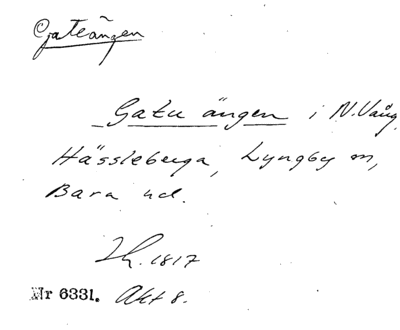 Gateängen
Gatu ängen i N. Vång,
Hässleberga, Lyngby sn,
Bara hd.
Lh. 1817
Nr 6331. Akt 8.